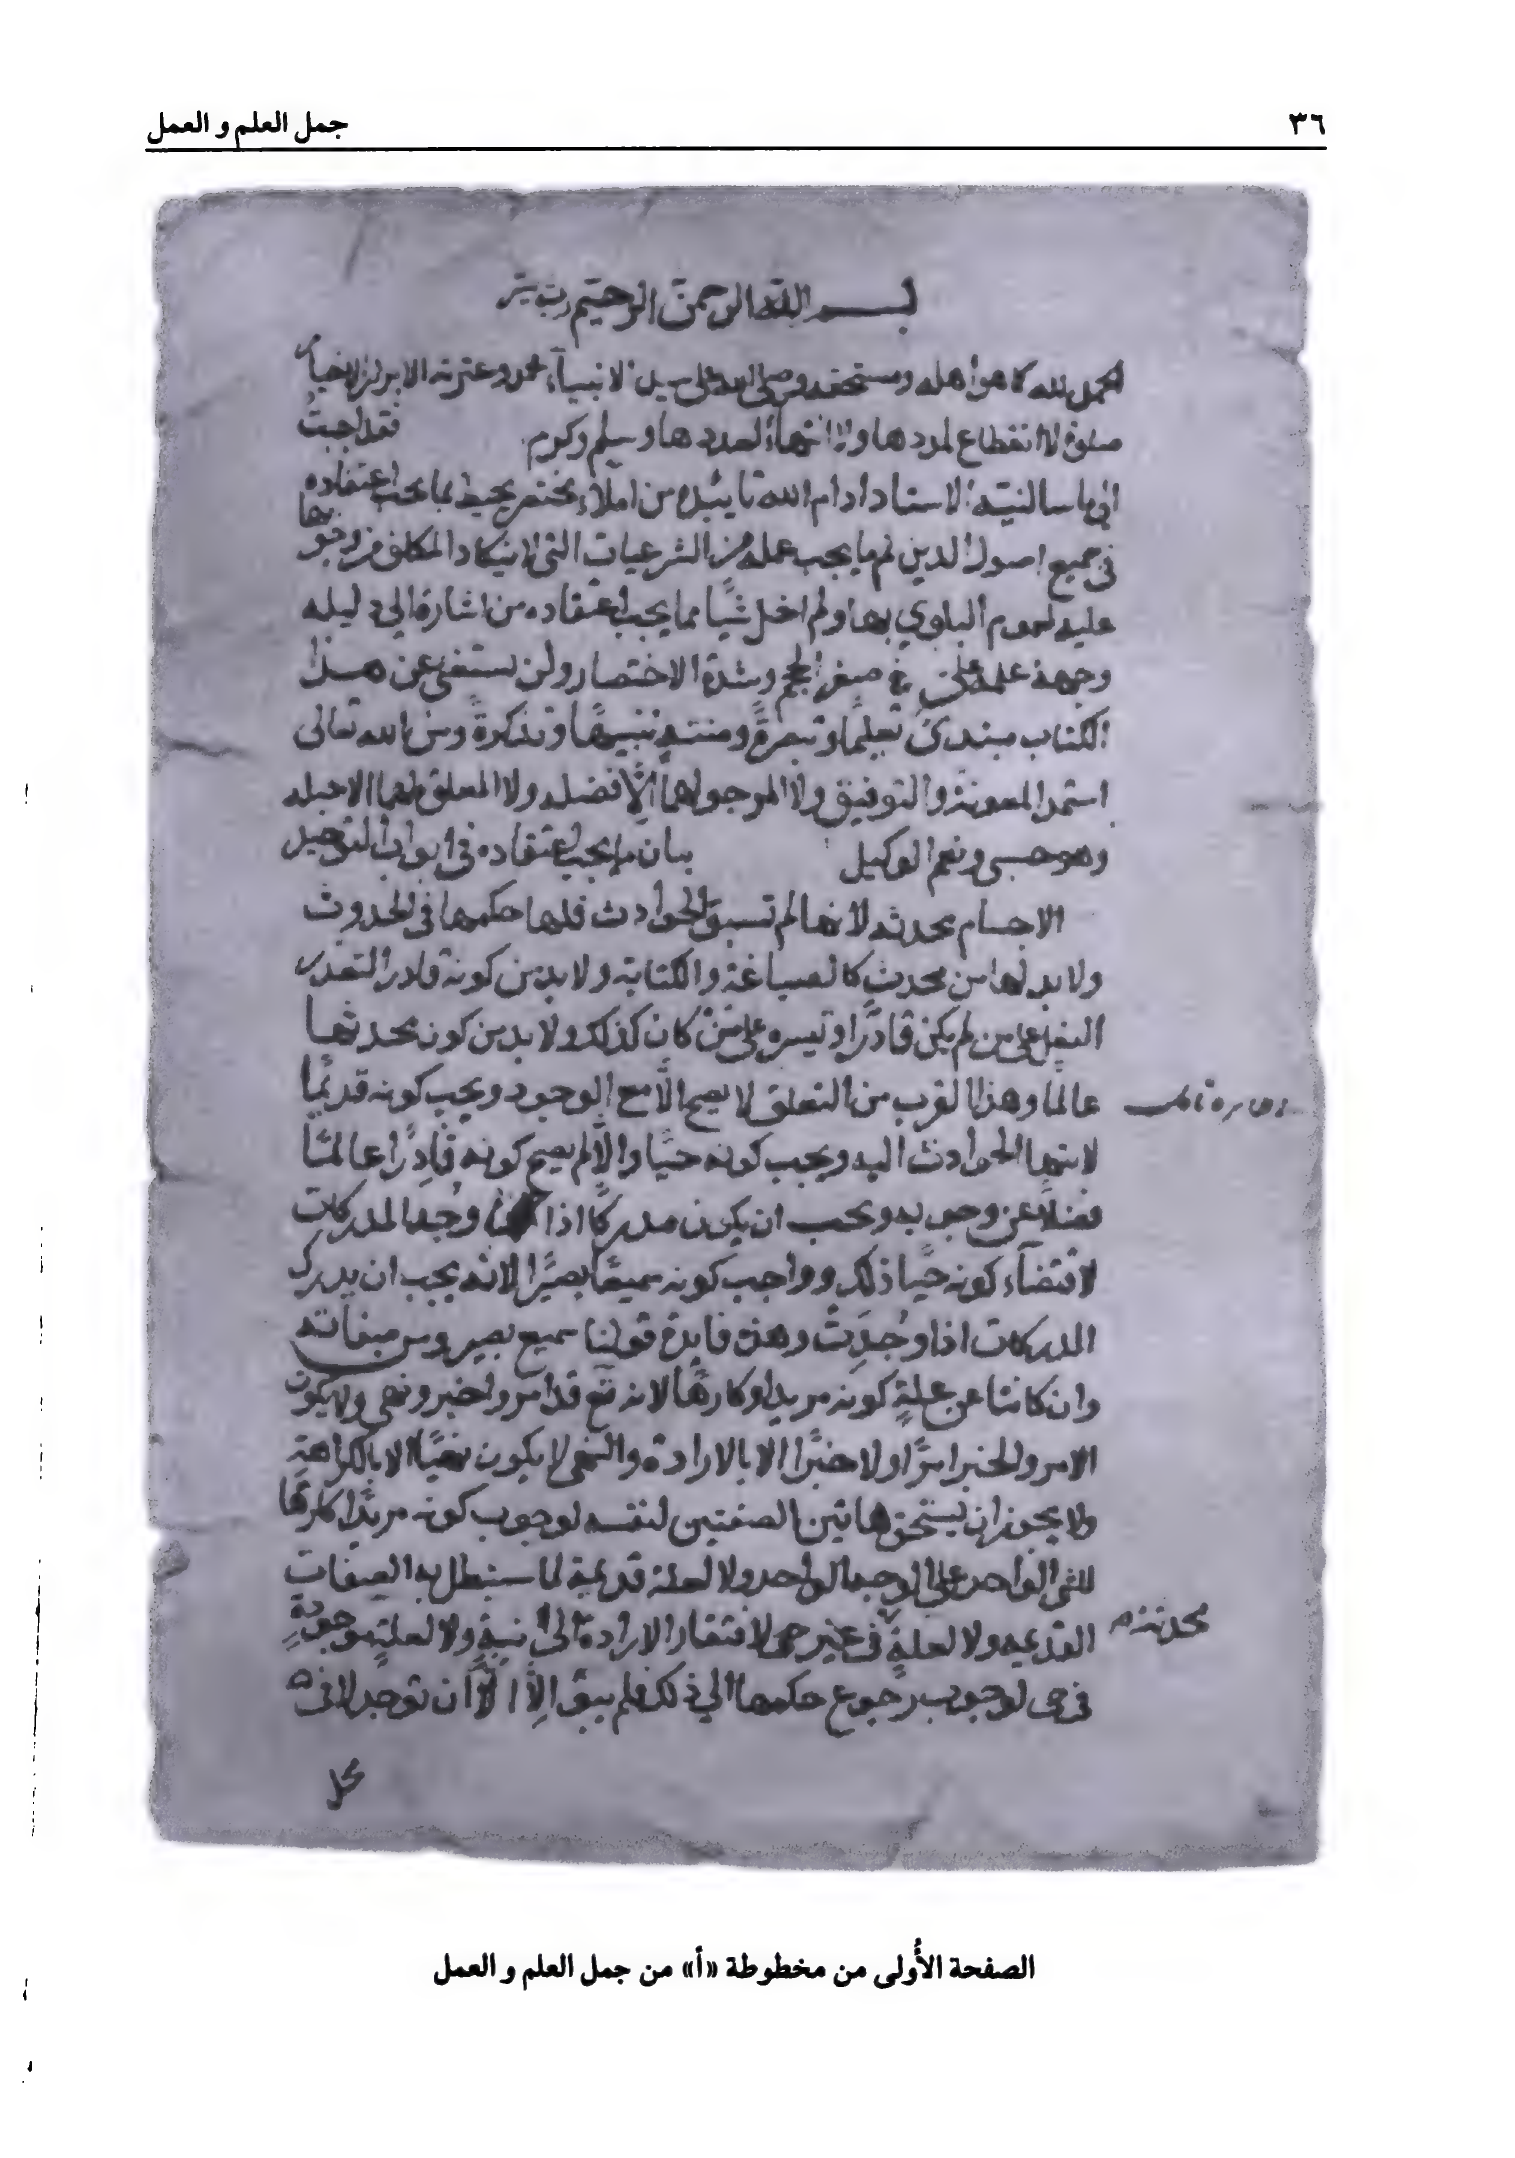 ٣٦
جمل العلم و العمل
بسم الله الرحمن الرحيم رب يسر
الحمد لله كما هو اهله ومستحقه وصلى الله على سيد الانبياء محمد وعترته الابرار الاخيار
صلوة لا انقطاع لمددها ولا انتهاء لعددها وسلم وكرم فقد اجبت
الى ما سالنيه الاستاد ادام الله تاييده من املاء مختصر يحيط بما يجب اعتقاده
في جميع اصول الدين ثم ما يجب عمله من الشرعيات التي لا ينكاد المكلف من وجوبها
عليه لعموم البلوي بها ولم اخل شيًا مما يجب اعتقاده من اشارة الي دليله
وجهة علمه على صغر الحجم وشدة الاختصار ولن يستغني عن هذا
الكتاب مبتدئ تعليمًا وتبصرةً ومنتهٍ تنبيهًا وتذكرةً ومن الله تعالى
استمد المعونة والتوفيق ولا المرجو لهما الا فضله ولا المعلق بهما الا حبله
وهو حسبي ونعم الوكيل بيان ما يجب اعتقاده في ابواب التوحيد
الاجسام محدثه لانها لم تسبق الحوادث فلها حكمها في الحدوث
ولا بد لها من محدث كالصياغة والكتابة ولا بد من كونه قادرا لتعذر
الفعل على من لم يكن قادرًا وتيسره على من كان كذلك ولا بد من كون محدثها
عالما وهذا الضرب من التعلق لا يصح الا مع الوجود ويجب كونه قديمًا
لانتهاء الحوادث اليه ويجب كونه حيًا والا لم يصح كونه قادرًا عالمًا
فضلا عن وجوبه ويجب ان يكون مدركًا اذا وجد المدركات
لاقتضاء كونه حيًا ذلك وواجب كونه سميعًا بصيرًا لانه يجب ان يدرك
المدركات اذا وُجِدَت وهذه فايدة قولنا سميع بصير ومن صفاته
وان كانتا عن علةٍ كونه مريدا وكارهًا لانه تع قد امر واخبر ونهى ولا يكون
الامر والخبر امرًا ولا خبرًا الا بالارادة والنهي لا يكون نهيًا الا بالكراهة
ولا يجوز ان يستحق هاتين الصفتين لنفسه لوجوب كونه مريدًا كارهًا
للشي الواحد على الوجه الواحد ولا لعلة قديمة لما سنبطل به الصفات
القديمه ولا لعلةٍ في غير حي لافتقار الارادة الى نيةٍ ولا لعلةٍ موجودةٍ
محدثة
في حي لوجوب رجوع حكمها الي ذلك فلم يبق الا ان توجد لا في
محل
الصفحة الأُولى من مخطوطة «أ» من جمل العلم و العمل